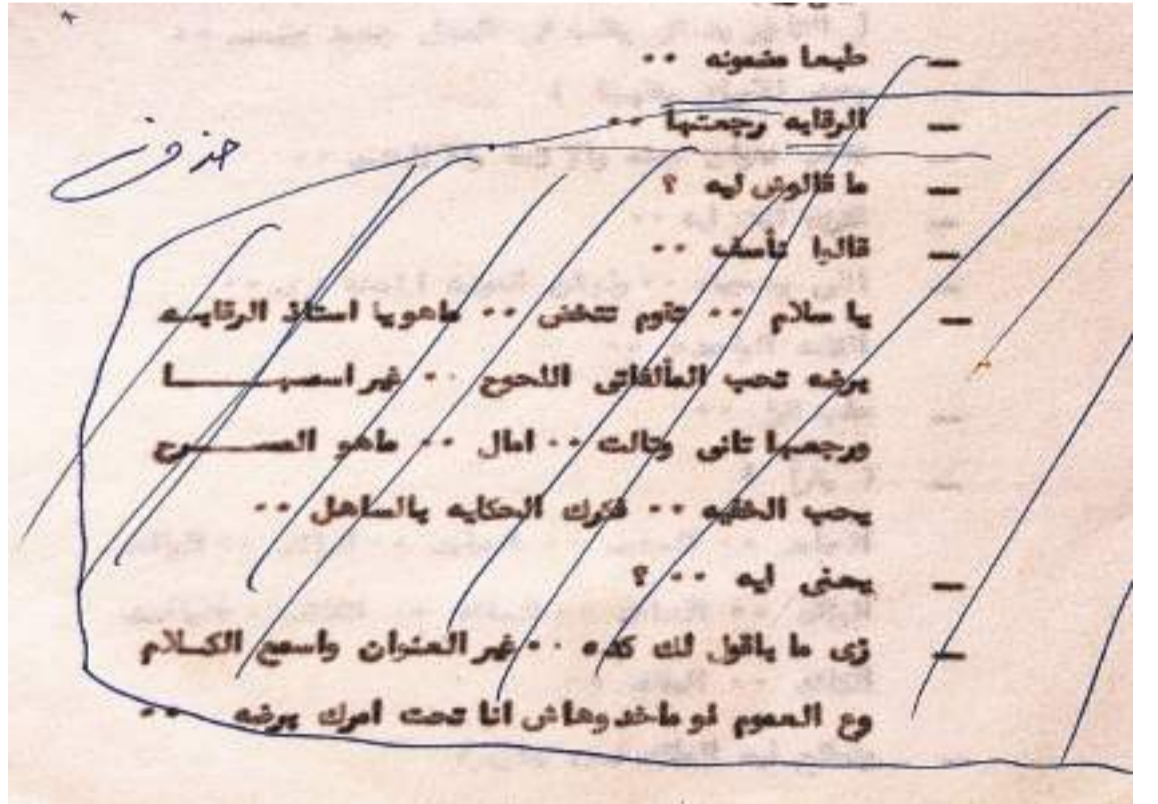 — طبعا مضمونه ٠٠
— الرقابه رجعتها ٠٠
حذف
— ما قالوش ليه ؟
— قالوا تأسف ٠٠
— يا سلام ٠٠ تقوم تتخنى ٠٠ ماهو يا استاذ الرقابـه
برضه تحب المألفاتى اللحوح ٠٠ غير اسمهــــا
ورجعها تانى وتالت ٠٠ امال ٠٠ ماهو المســـرح
يحب الخفيه ٠٠ فكرك الحكايه بالساهل ٠٠
— يعنى ايه ٠٠ ؟
— زى ما باقول لك كده ٠٠ غير العنوان واسمع الكـلام
وع العموم لو ماخدوهاش انا تحت امرك برضه ٠٠